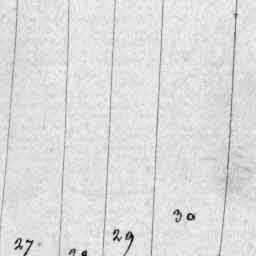 30
29
27.